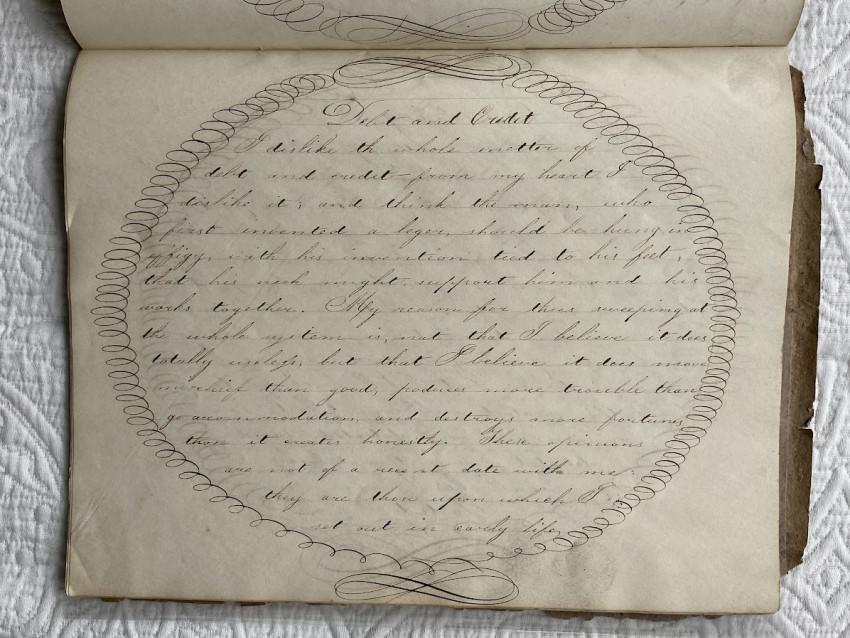 Debt and Credit
I dislike th whole matter of
debt and credit - from my heart I
dislike it; and think the man, who
first invented a leger, should be hung in
effigy, with his invention tied to his feet,
that his neck might support him and his
works together. My reason for thus sweeping at
the whole system is, not that I believe it does
totally useless, but that I believe it does more
mischief than good, produces more trouble than
accommodation, and destroys more fortunes
than it creates honestly. These opinions
are not of a recent date with me:
they are those upon which I
set out in early life,